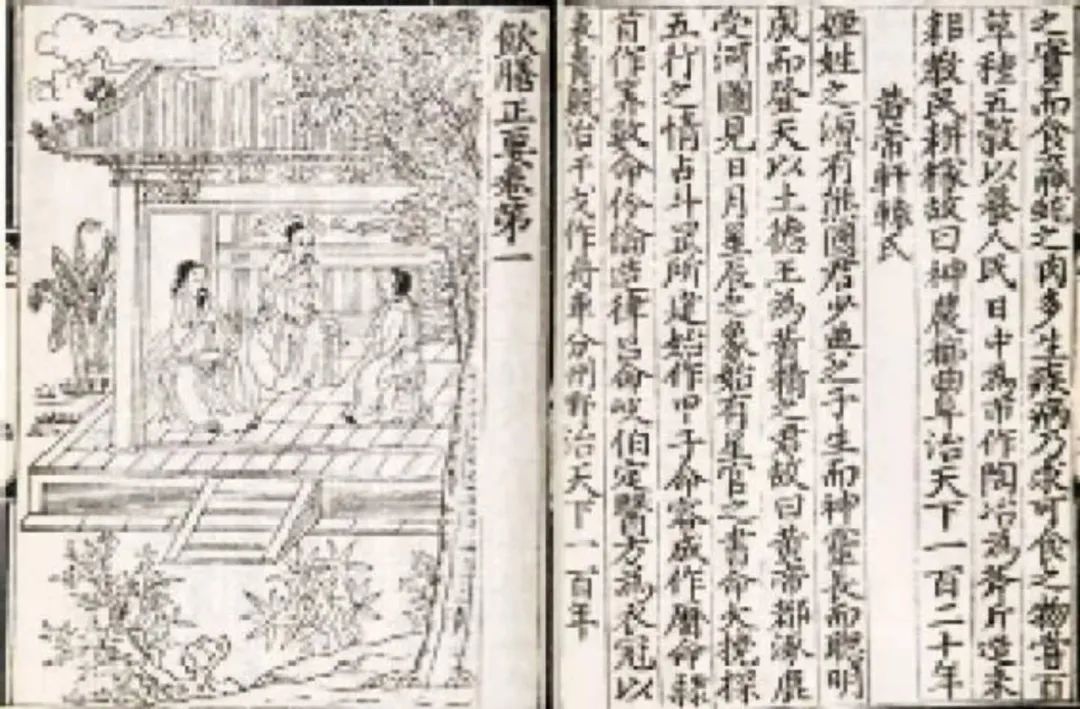 之實而食之肉多生疾病乃求可食之物嘗百
草種五穀以養人民日中為市作陶冶為斧斤造耒
耜教民耕稼故曰神農都曲阜治天下一百二十年
黃帝軒轅氏
姬姓之源有熊國君少典之子生而神靈長而聰明
成而登天以土德王為黃精之君故曰黃帝都涿鹿
受河圖見日月星辰之象始有星官之書命大撓探
五行之情占斗罡所建始作甲子命容成作曆命隸
首作算數命伶倫造律呂命岐伯定醫方為衣冠以
表貴賤治干戈作舟車分州野治天下一百年
飲膳正要卷第一